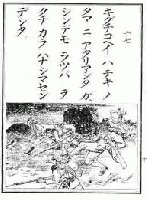 十七
キグチコヘイ ハ テキ ノ
タマ ニ アタリマシタ ガ、
シンデモ ラッパ ヲ
クチ カラ ハナシマセン
デシタ